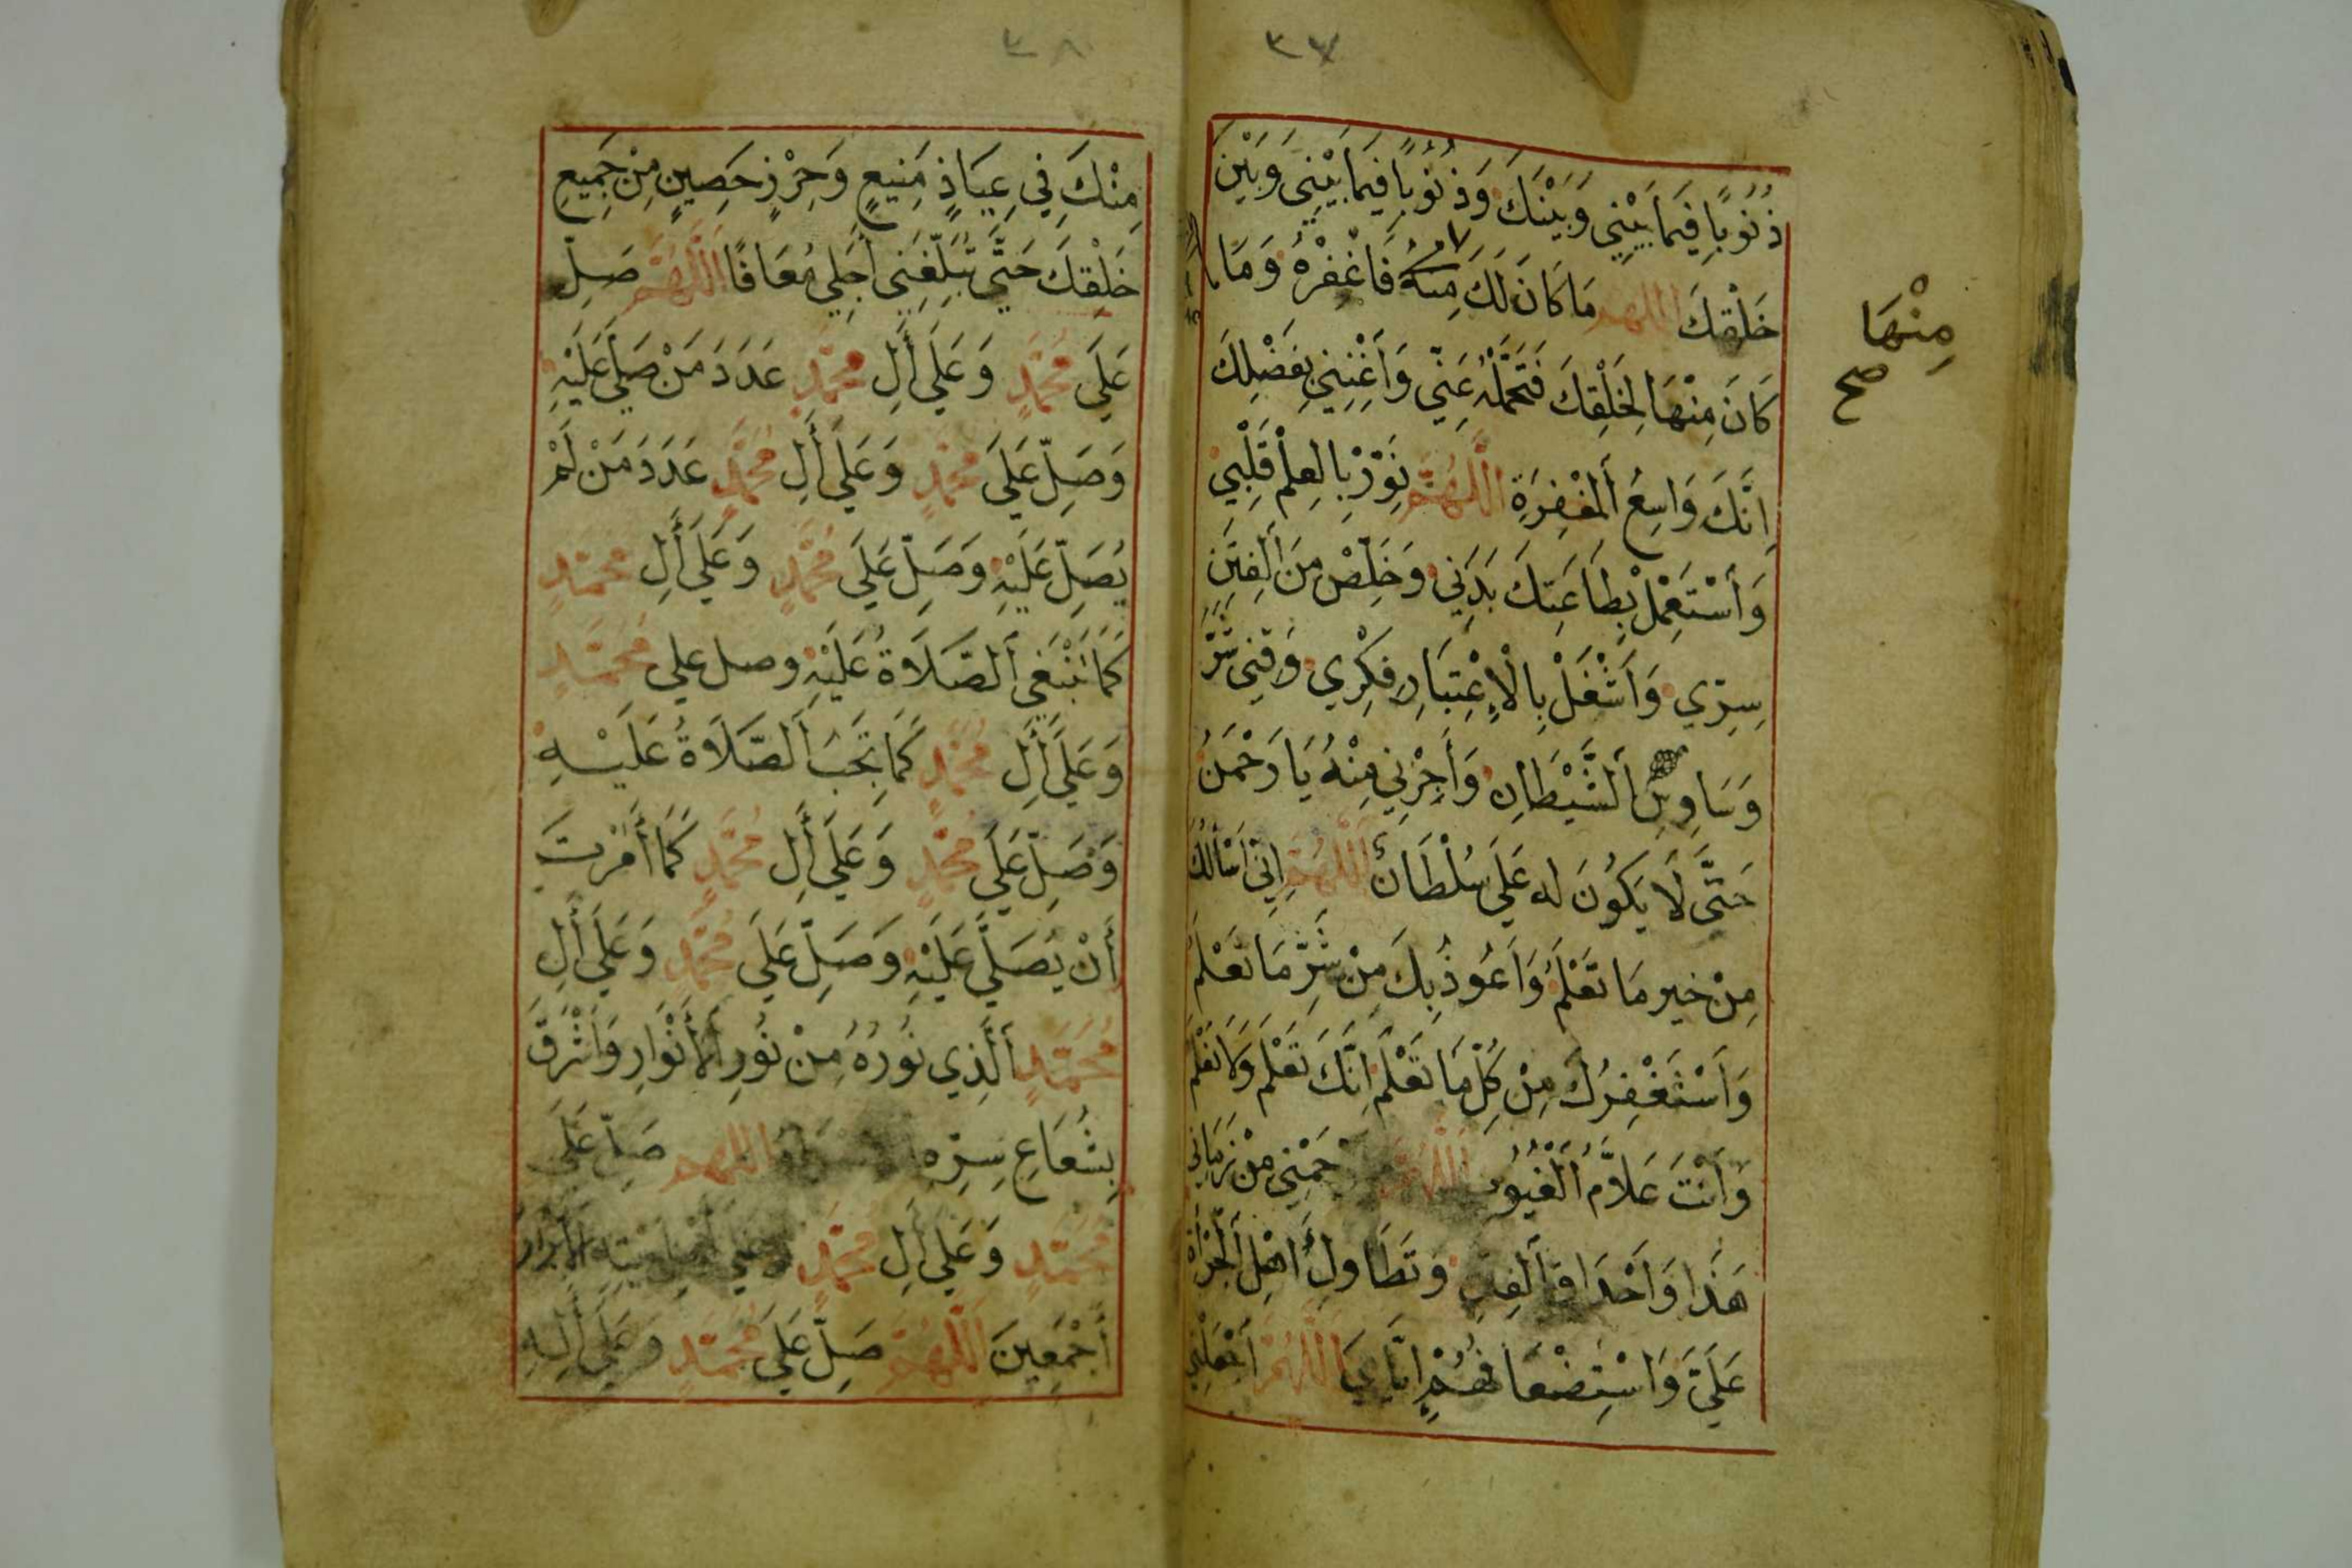 ٣٧
ذُنُوبًا فِيمَا بَيْنِي وَبَيْنَكَ وَذُنُوبًا فِيمَا بَيْنِي وَبَيْنَ
خَلْقِكَ اللهم مَا كَانَ لَكَ مِنْهُ فَاغْفِرْهُ وَمَا
كَانَ مِنْهَا لِخَلْقِكَ فَتَحَمَّلْهُ عَنِّي وَأَغْنِنِي بِفَضْلِكَ
اِنَّكَ وَاسِعُ اَلْمَغْفِرَةِ اَللَّهُمَّ نَوِّرْ بِالعِلْمِ قَلْبِي
وَأَسْتَعْمِلْ بِطَاعَتِكَ بَدَنِي وَخَلِّصْ مِنَ اَلفِتَنِ
سِرِّي وَأَشْغَلْ بِالْاِعْتِبَارِ فِكْرِي وَقِنِي شَرَّ
وَسَاوِسِ اَلشَّيْطَانِ وَأَجِرْنِي مِنْهُ يَا رَحْمَنُ
حَتَّى لَا يَكُونَ له عَلَيَّ سُلْطَانٌ اَللَّهُمَّ اِنِّي اَسْأَلُكَ
مِنْ خير مَا تَعْلَمُ وَاَعُوذُ بِكَ مِنْ شَرِّ مَا تَعْلَمُ
وَاَسْتَغْفِرُكَ مِنْ كُلِّ مَا تَعْلَمُ اِنَّكَ تَعْلَمُ وَلَا نَعْلَمُ
وَاَنْتَ عَلَّامُ اَلْغُيُوبِ اَللَّهُمَّ اَرْحَمْنِي مِنْ زَمَانِي
هَذَا وَاَحْدَاقِ اَلفِتَنِ وَتَطَاوِلِ أَهْلِ اَلْجُرْأَةِ
عَلَيَّ وَاسْتِضْعَافِهُمْ اِيَّايَ اَللَّهُمَّ اَجْعَلْنِي
مِنْهَا
صح
٣٨
مِنْكَ فِي عِيَاذٍ مَنِيعٍ وَحِرْزٍ حَصِينٍ مِنْ جَمِيعِ
خَلْقِكَ حَتَّى تُبَلِّغَنِي أَجَلِي مُعَافًا اَللَّهُمَّ صَلِّ
عَلَى مُحَمَّدٍ وَعَلَى أَلِ مُحَمَّدٍ عَدَدَ مَنْ صَلَّى عَلَيْهِ
وَصَلِّ عَلَى مُحَمَّدٍ وَعَلَى أَلِ مُحَمَّدٍ عَدَدَ مَنْ لَمْ
يُصَلِّ عَلَيْهِ وَصَلِّ عَلَى مُحَمَّدٍ وَعَلَى أَلِ مُحَمَّدٍ
كَمَا يَنْبَغِي اَلصَّلَاةُ عَلَيْهِ وصل على مُحَمَّدٍ
وَعَلَى أَلِ مُحَمَّدٍ كَمَا تَجِبُ اَلصَّلَاةُ عَلَيْهِ
وَصَلِّ عَلَى مُحَمَّدٍ وَعَلَى أَلِ مُحَمَّدٍ كَمَا أَمَرْتَ
أَنْ يُصَلَّى عَلَيْهِ وَصَلِّ عَلَى مُحَمَّدٍ وَعَلَى أَلِ
مُحَمَّدٍ اَلَّذِي نُورُهُ مِنْ نُورِ اَلأَنْوَارِ وَاَشْرَقَ
بِشُعَاعِ سِرِّهِ اللهم صَلِّ عَلَى
مُحَمَّدٍ وَعَلَى أَلِ مُحَمَّدٍ وَعَلَى أَهْلِ بَيْتِهِ اَلْأَبْرَارِ
أَجْمَعِينَ اَللَّهُمَّ صَلِّ عَلَى مُحَمَّدٍ وَعَلَى أَلِهِ